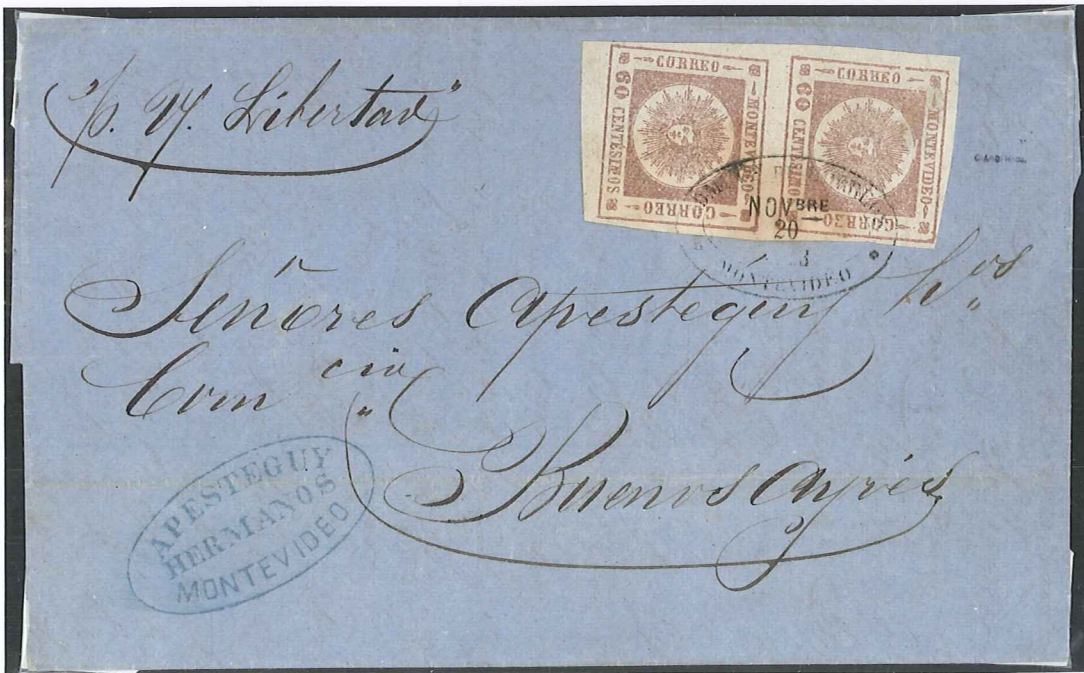 "p. V. Libertad"
CORREO
60 CENTESIMOS
MONTEVIDEO
CORREO
CORREO
60 CENTESIMOS
MONTEVIDEO
CORREO
NOVBRE
20
MONTEVIDEO
Señores Apesteguy hos
Comcio
Buenos Ayres
APESTEGUY
HERMANOS
MONTEVIDEO